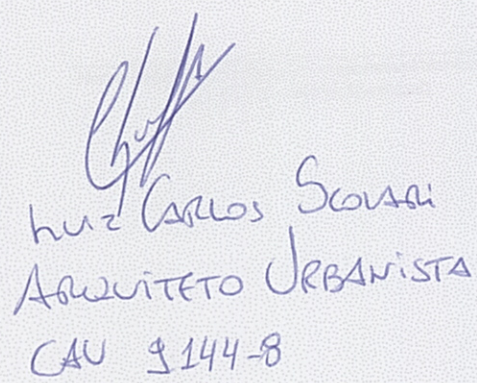 Luiz Carlos Scolari
Arquiteto Urbanista
CAU 9144-8